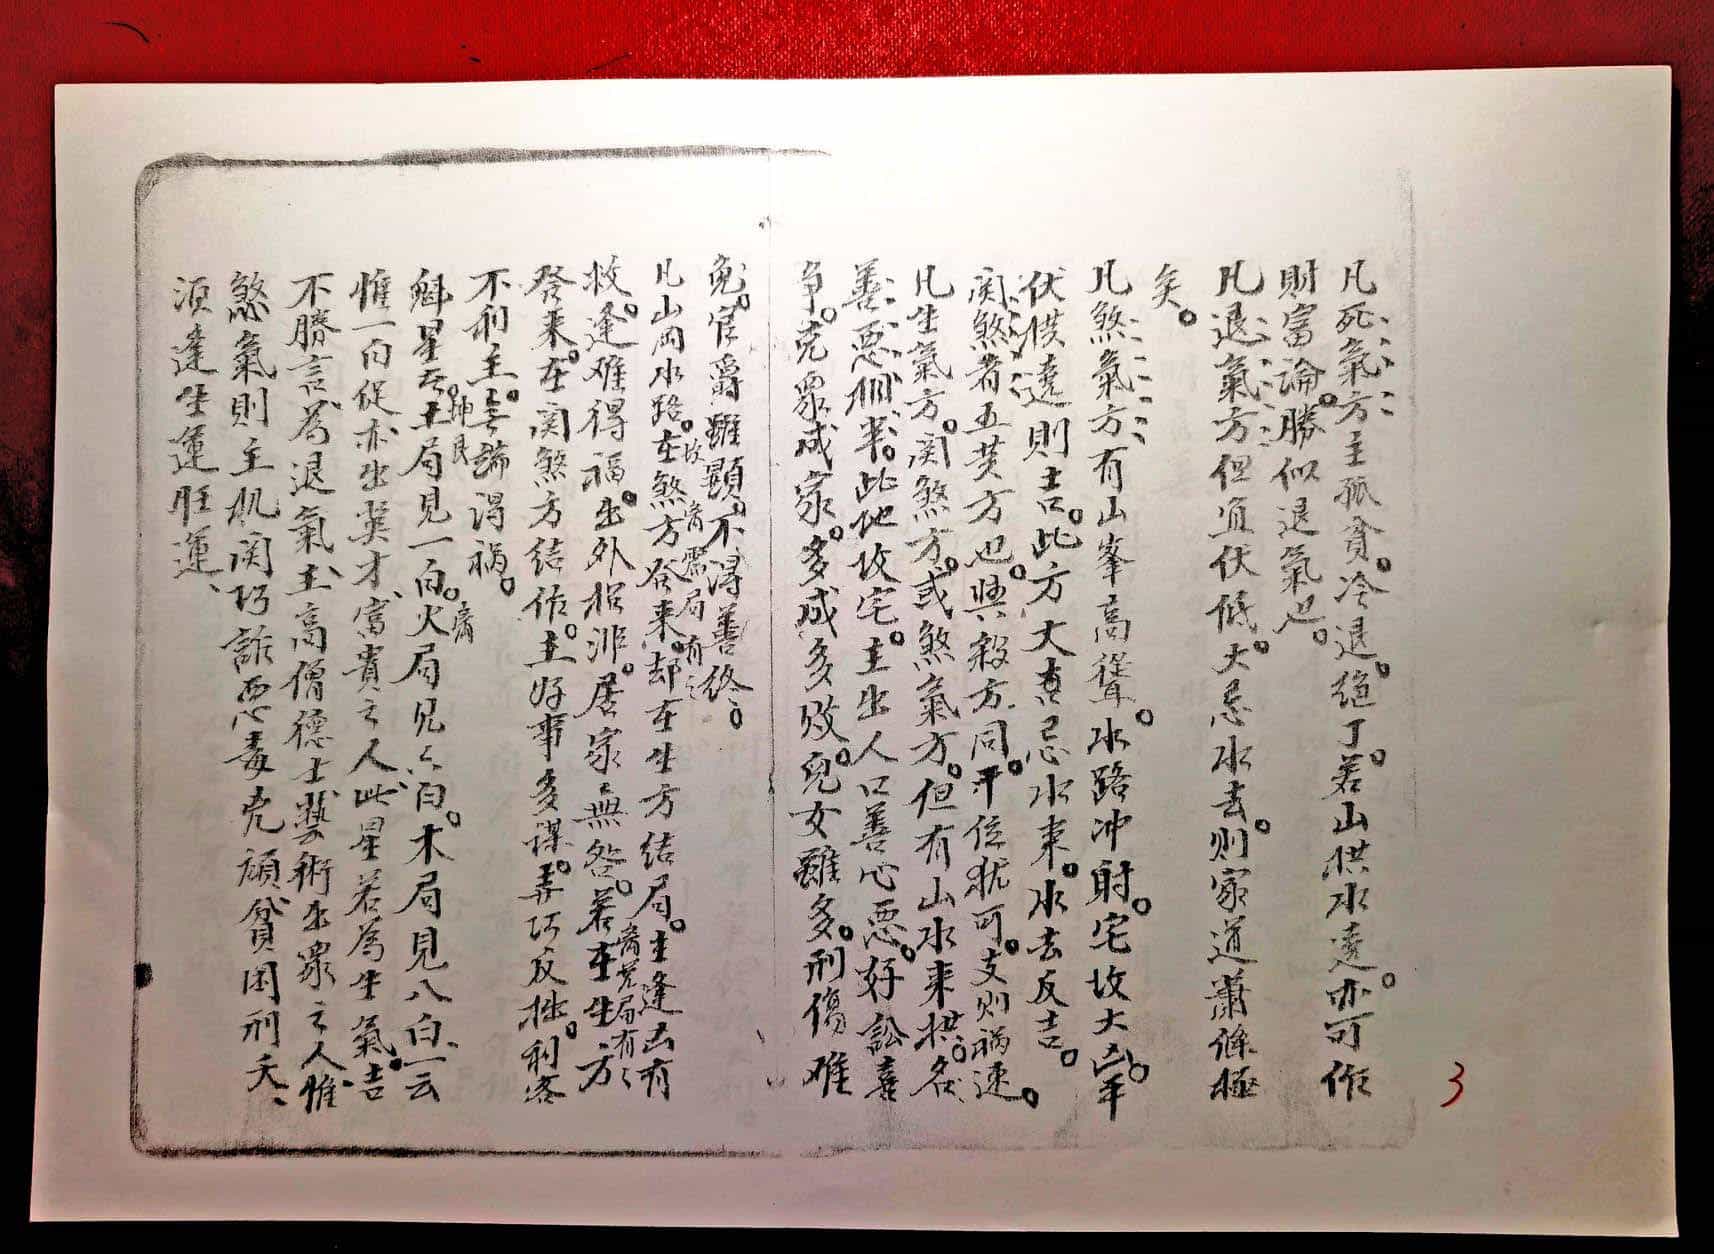 凡死氣方主孤貧。冷退。絕丁。若山拱水遶。亦可作
則富論。勝似退氣也。
凡退氣方但宜伏低。大忌水去。则家道蕭條極
矣。
凡煞氣方有山峯高聳。水路冲射。宅坟大凶。
伏遶則吉。此方大忌水来。水去反吉。
関煞者五黄方也。與殺方同。平位犹可。支则祸速。
凡生氣方。関煞方。或煞氣方。但有山水来拱。名
善惡相半。此地坟宅。主出人口善心惡。好訟喜
争。克眾成家。多成多败。兒女雖多。刑傷难
免。官爵雖顯。不得善終。
凡山岡水路。在煞方發来。却在生方结局。主逢凶有
坟 局有
救。逢难得福。出外招非。居家無咎。若在生方
局有
發来。在関煞方结作。主好事多謀。弄巧反拙。利客
不利主。無端得祸。
魁星云。土局見一白。火局见六白。木局見八白。一云
坤艮
惟一向從亦出英才、富貴之人、此星若為生氣。吉
不勝言、為退氣、主高僧德士、藝術出眾之人、惟
煞氣則主机関巧詐惡毒克頑貧困刑夭、
須逢生運旺運、
3